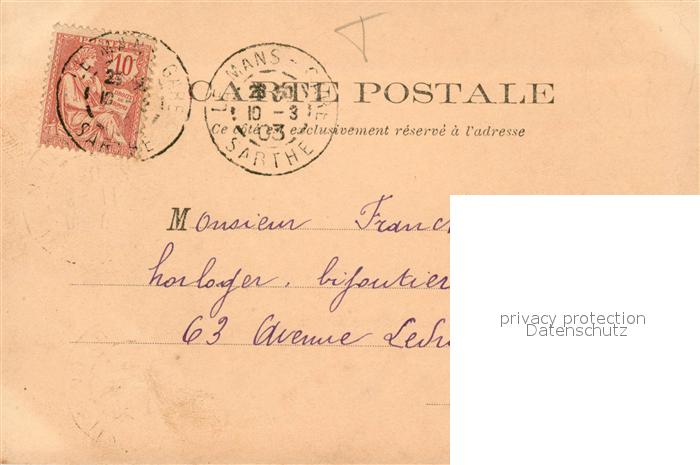 CARTE POSTALE
Ce côté est exclusivement réservé à l'adresse
LE MANS - GARE
10 - 3
03
SARTHE
10
Monsieur Franc
horloger, bijoutier
63 Avenue Ledr
privacy protection
Datenschutz